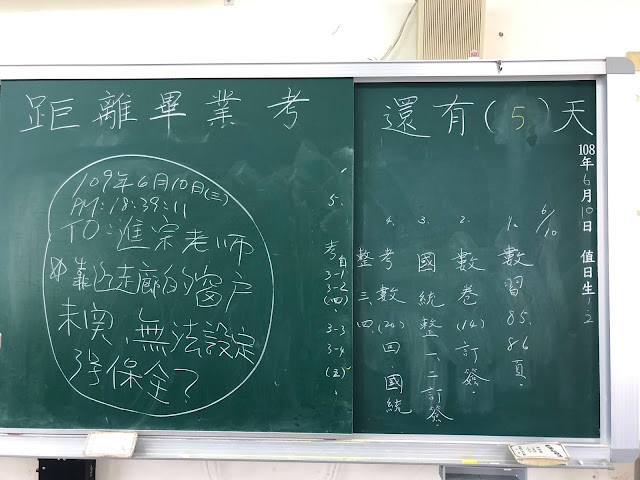 距離畢業考 還有(5)天
109年6月10日(三)
PM:18:39:11
TO:進宗老師
靠近走廊的窗户
未關,無法設定
保全?
108年6月10日 值日生:2
6/10
1. 數習85.86頁.
2. 數卷(14)訂簽.
3. 國統整一、二訂簽.
4. 考數(20)四國統
整三、四.
5. 考自
3-1
3-2
(四)
3-3
3-4
(五)